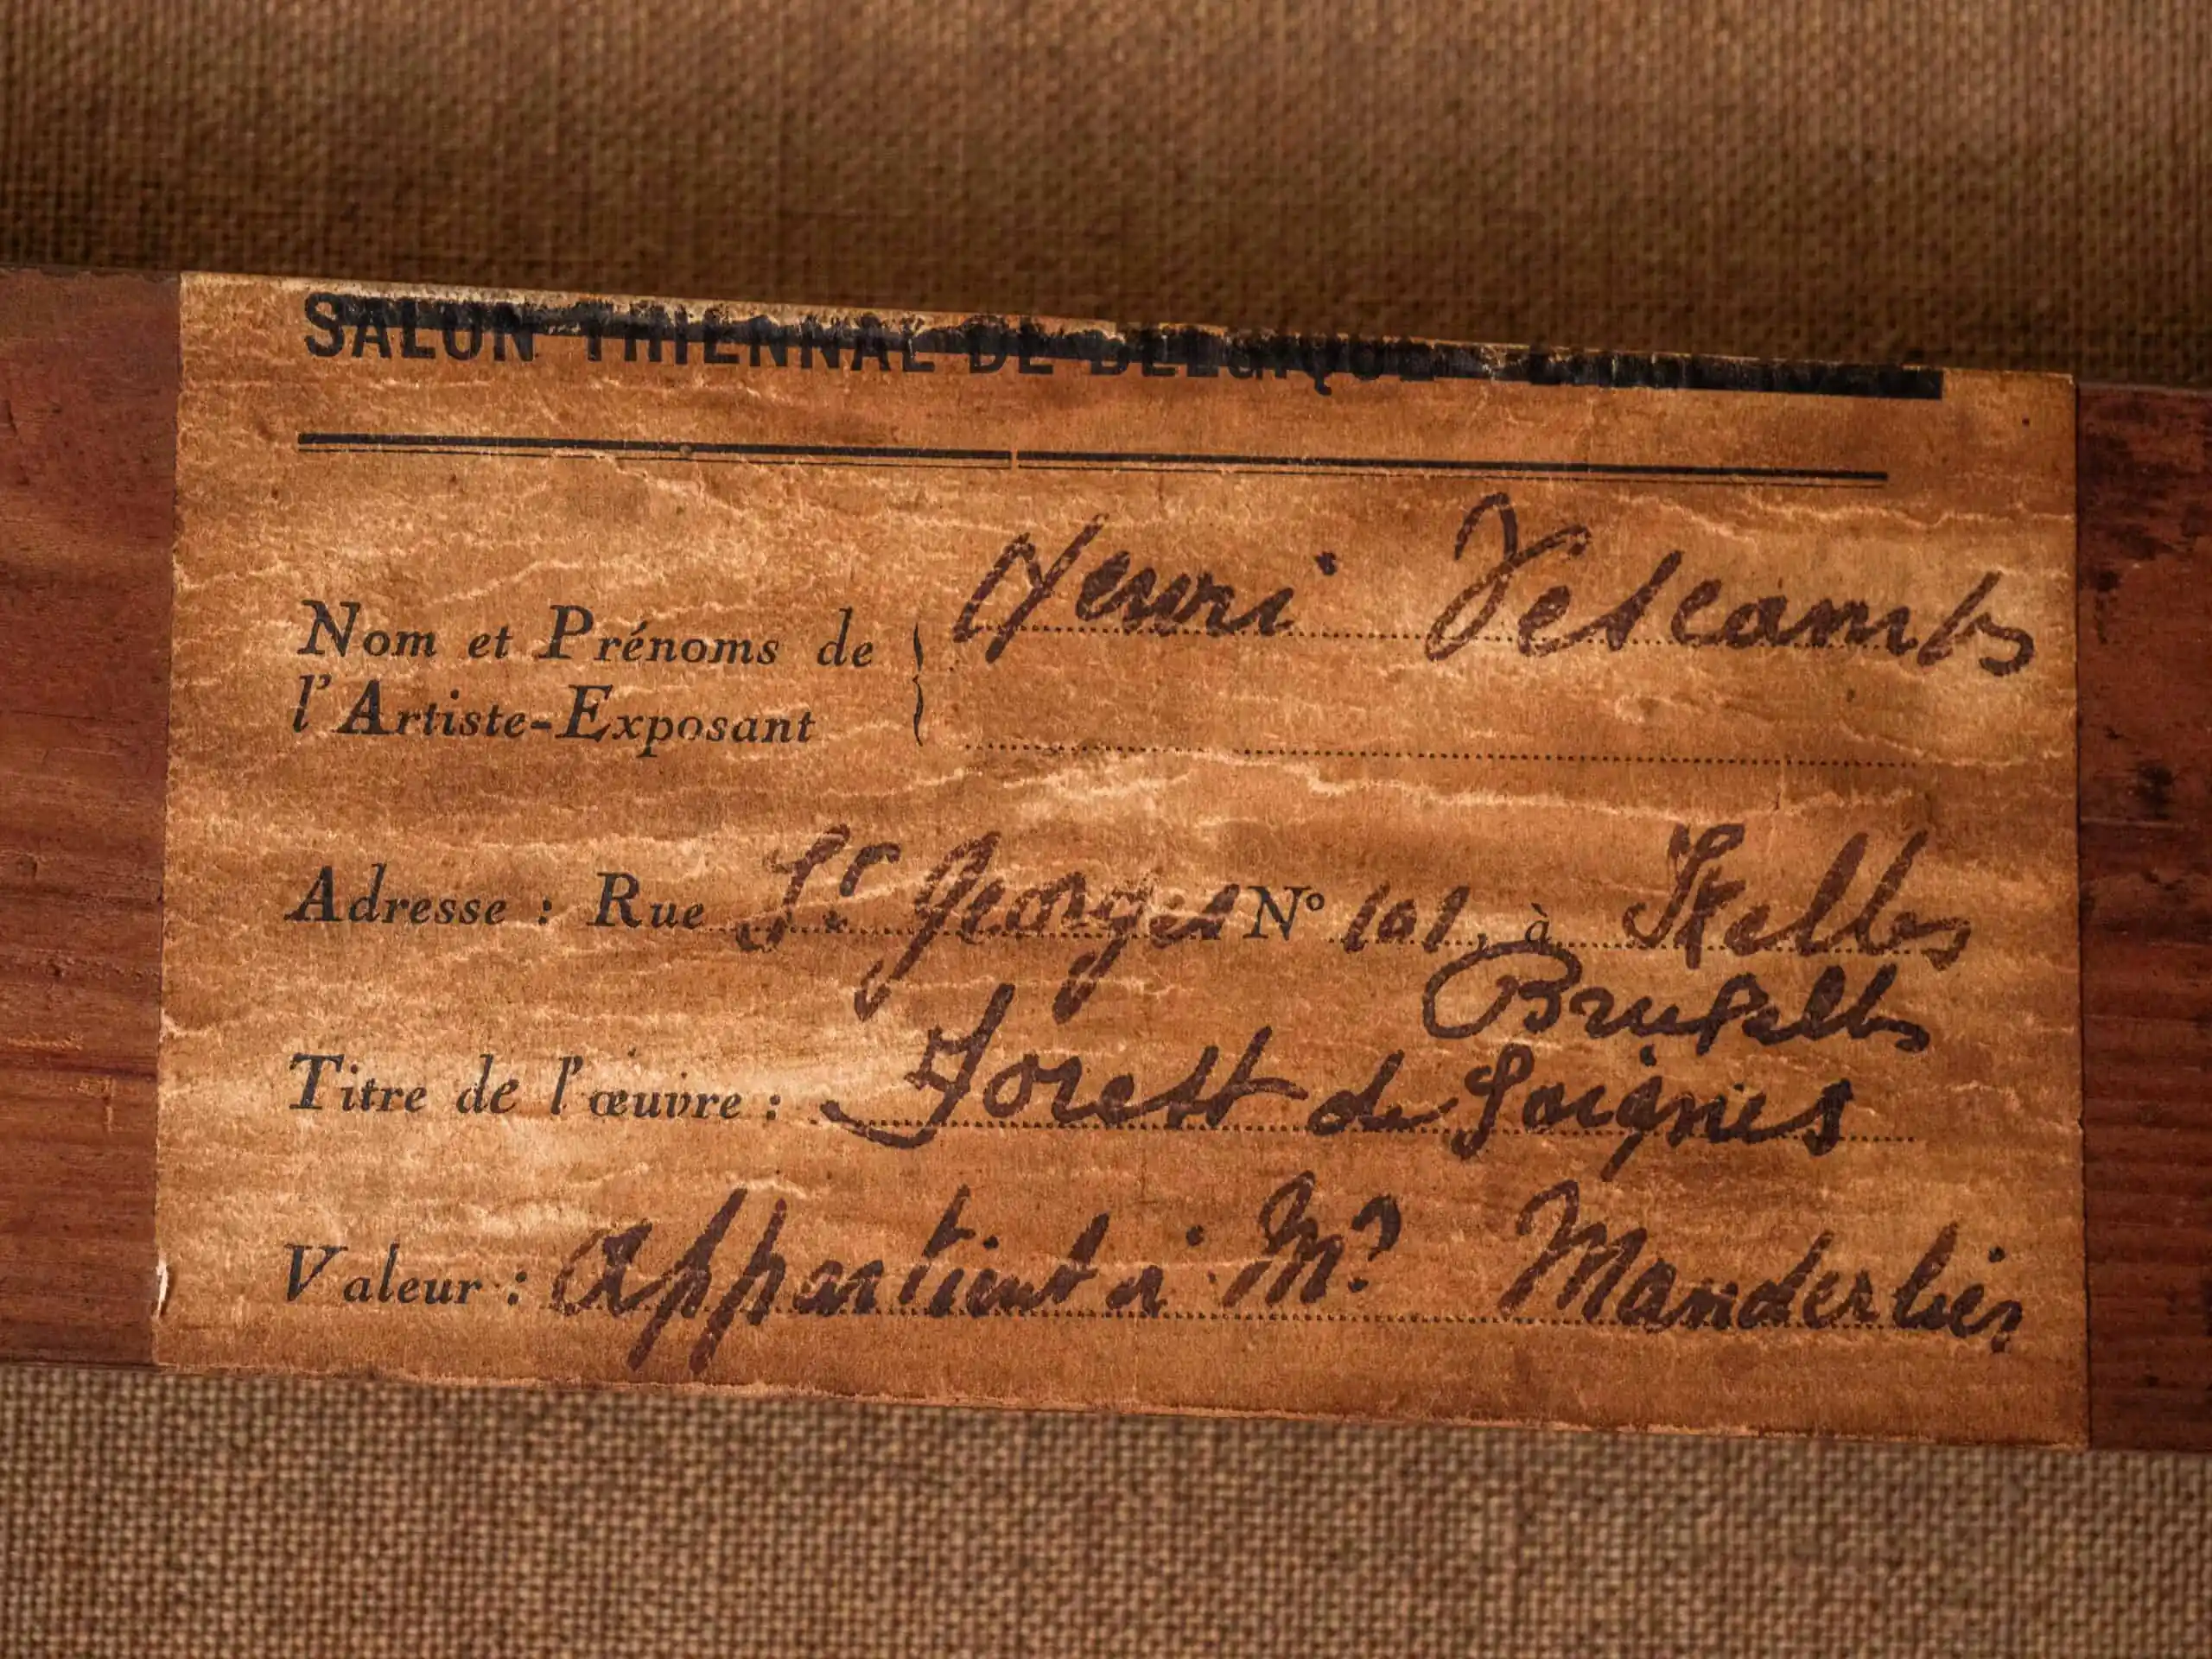 SALON TRIENNAL DE BELGIQUE
Henri Descamps
Nom et Prénoms de
l'Artiste-Exposant
Adresse : Rue St. Georges N° 101, à Ixelles
Bruxelles
Titre de l'œuvre : Forêt de Soignes
Valeur : appartient à Mr Manderlier